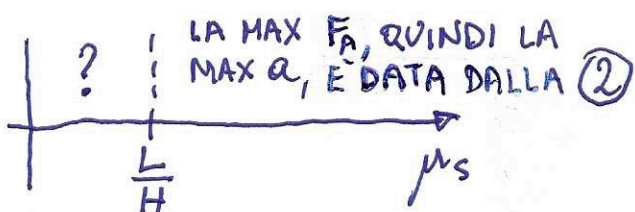 ? LA MAX F_A, QUINDI LA
MAX a, È DATA DALLA ②
L/H
μs